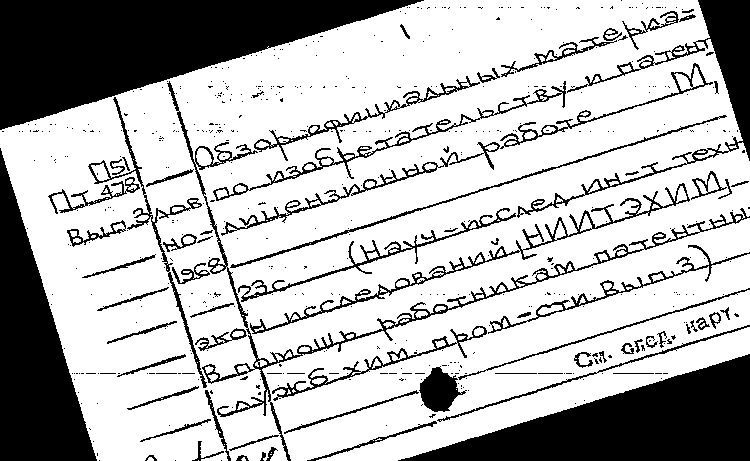 Обзор официальных материа-
П51
Пт 478
лов по изобретательству и патент
Вып.3
но-лицензионной работе М,
1968
23с (Науч-исслед ин-т техн
экон исследований [НИИТЭХИМ]
В помощь работникам патентны
служб хим. пром-сти. Вып.3)
См. след. карт.